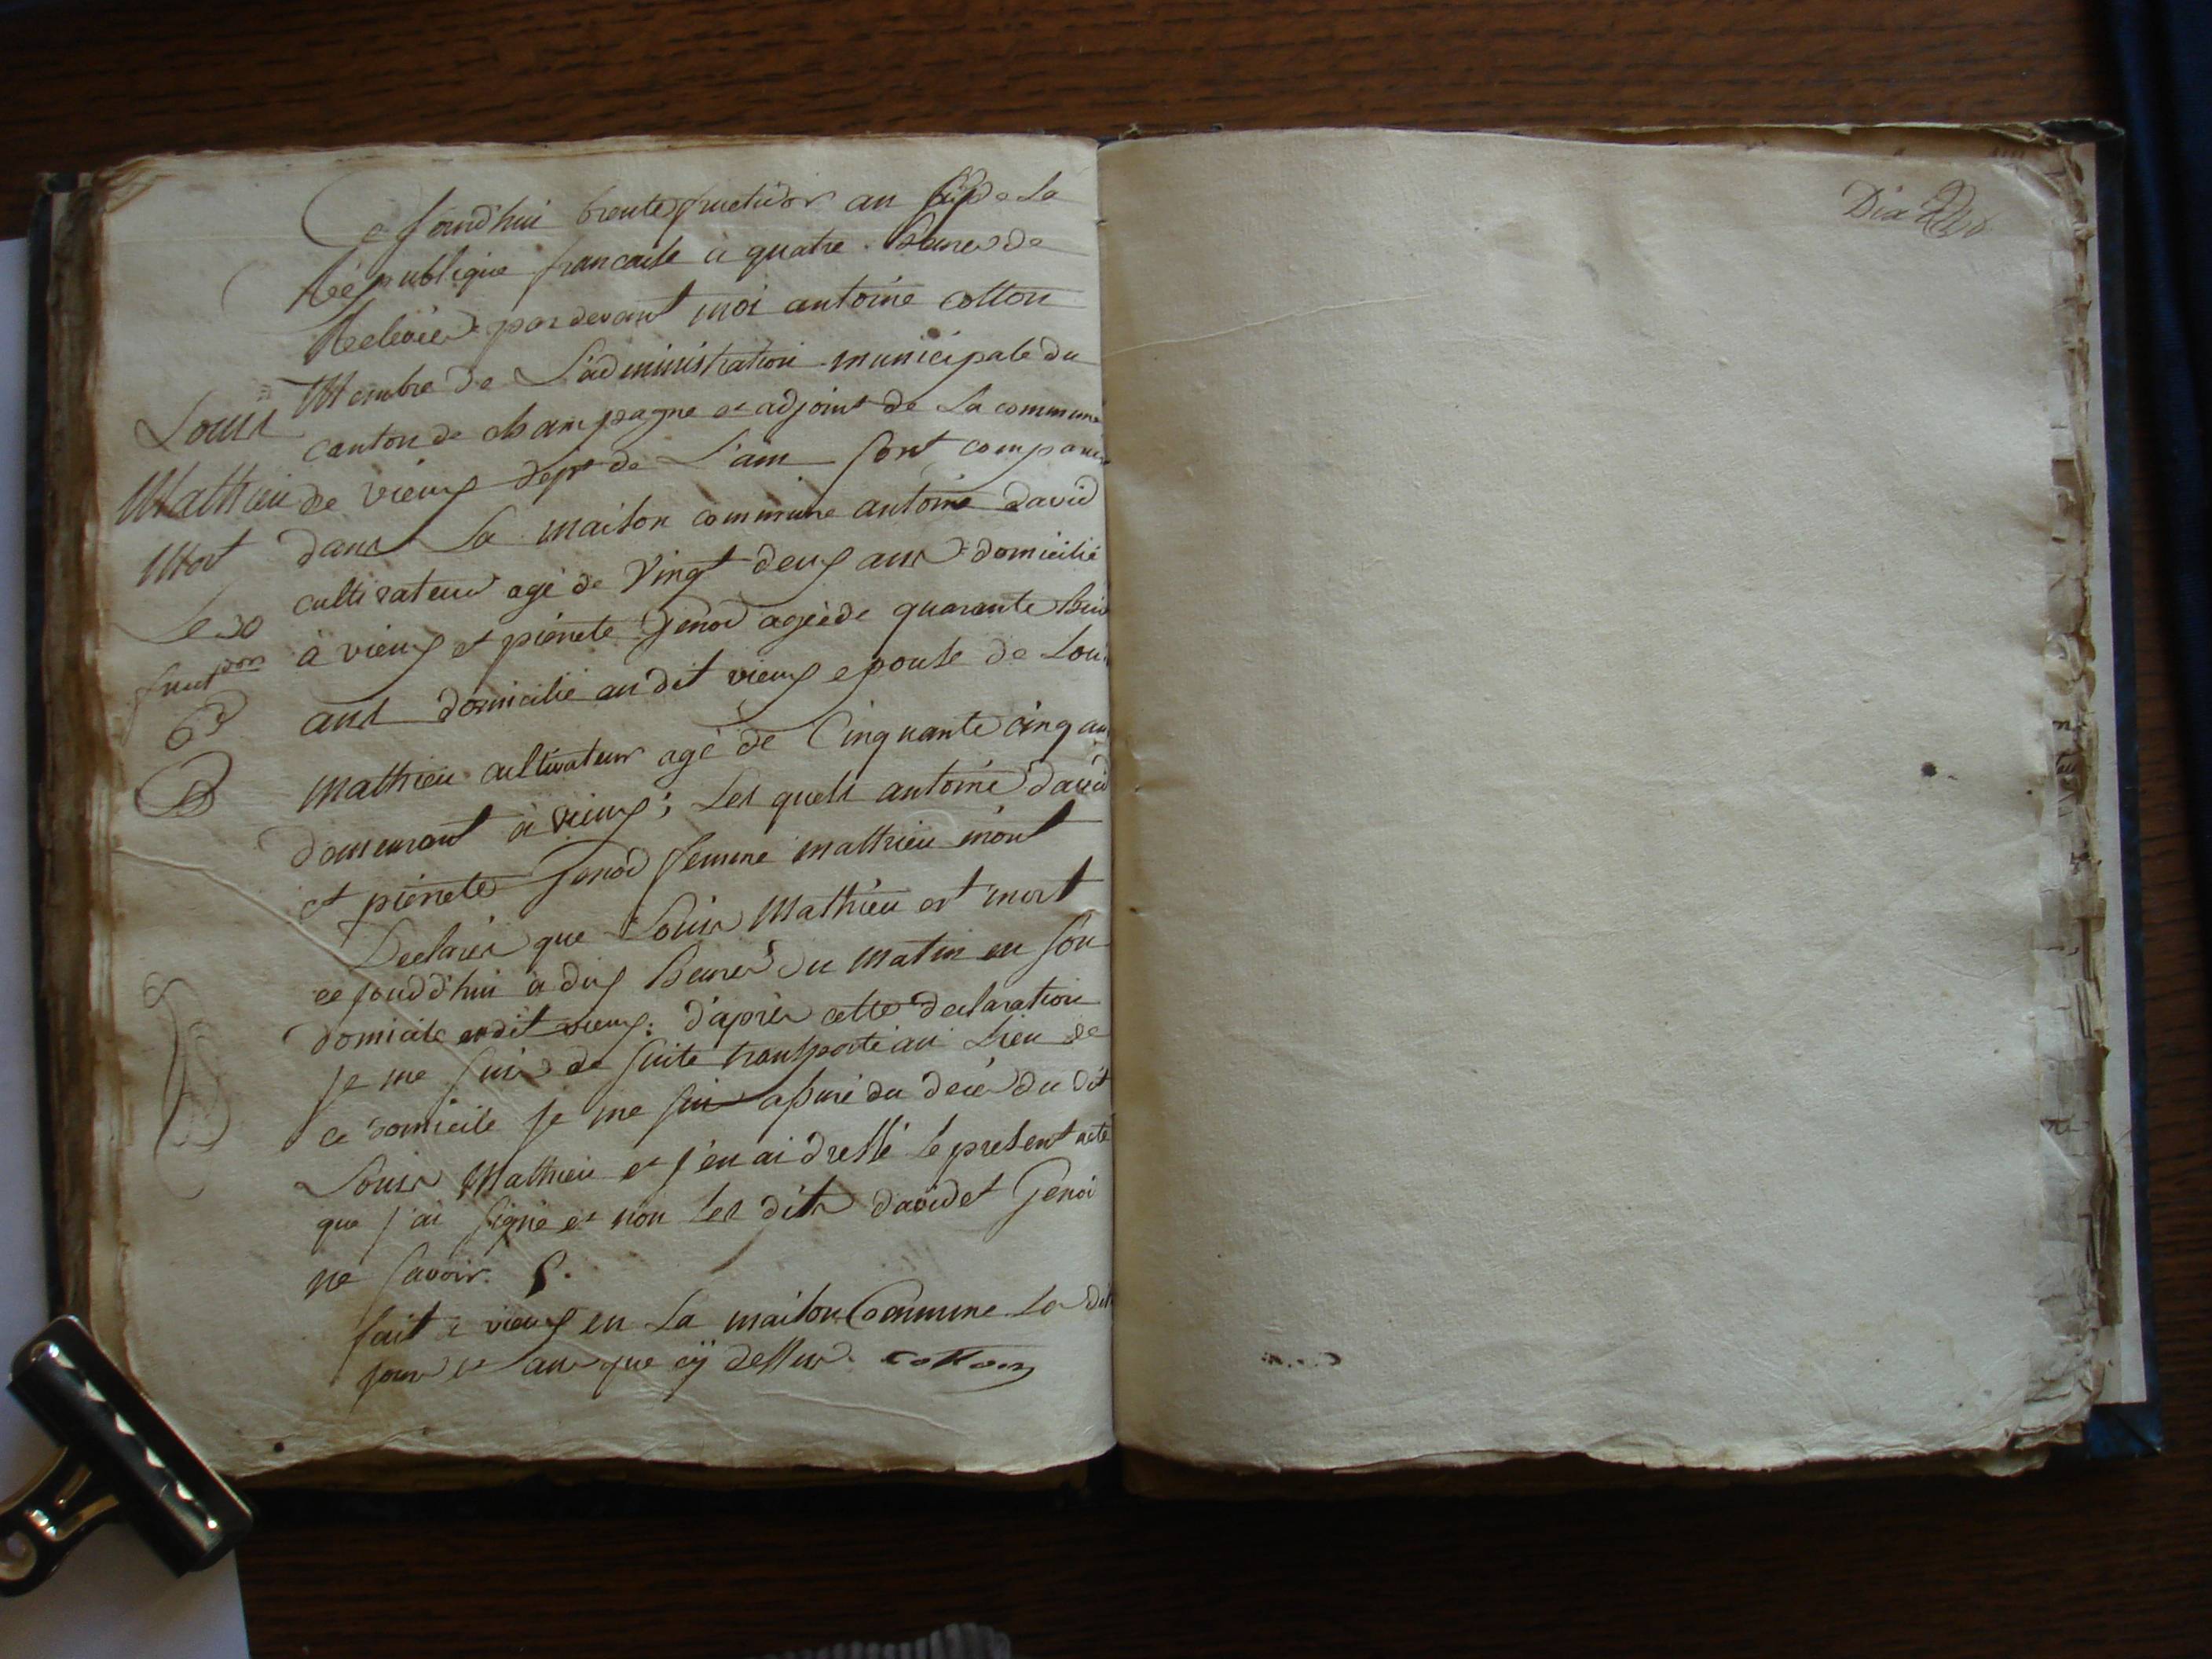 Ce jourd'hui trente fructidor an six de la
République francaise à quatre heures de
Relevée pardevant moi antoine cotton
Membre de L'administration municipale du
canton de champagne et adjoint de La commune
de vieux dept de L'ain sont comparus
dans La maison commune antoine david
cultivateur agé de Vingt deux ans domicilié
à vieux et pierrete Genod agée de quarante huit
ans domicilié au dit vieux epouse de Louis
Mathieu cultivateur agé de Cinquante cinq ans
demeurant à vieux; Les quels antoine david
et pierrete Genod femme mathieu m'ont
Declarés que Louis Mathieu est mort
ce jourd'hui à dix heures du matin en son
domicile au dit vieux: d'après cette declaration
je me suis de suite transporté au Lieu de
ce domicile je me suis assuré du decé du dit
Louis Mathieu et j'en ai dressé le present acte
que j'ai signé et non Les dits david et Genod
ne savoir.
fait à vieux en La maison Commune Le dit
jour et an que cÿ dessus. cotton
Louis
Mathieu
Mort
Le 30
Dix